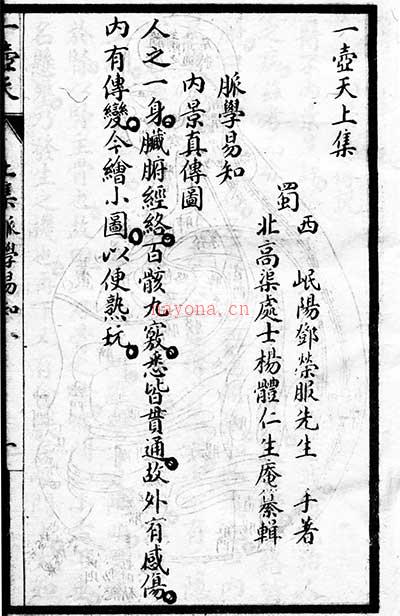 一壺天上集
蜀
西 岷陽鄧榮服先生 手著
北高渠處士楊體仁生庵纂輯
脈學易知
內景真傳圖
人之一身。臟腑經絡。百骸九竅。悉皆貫通。故外有感傷。
內有傳變。今繪小圖。以便熟玩。
一壺天 上集脈學易知 一
nayona.cn